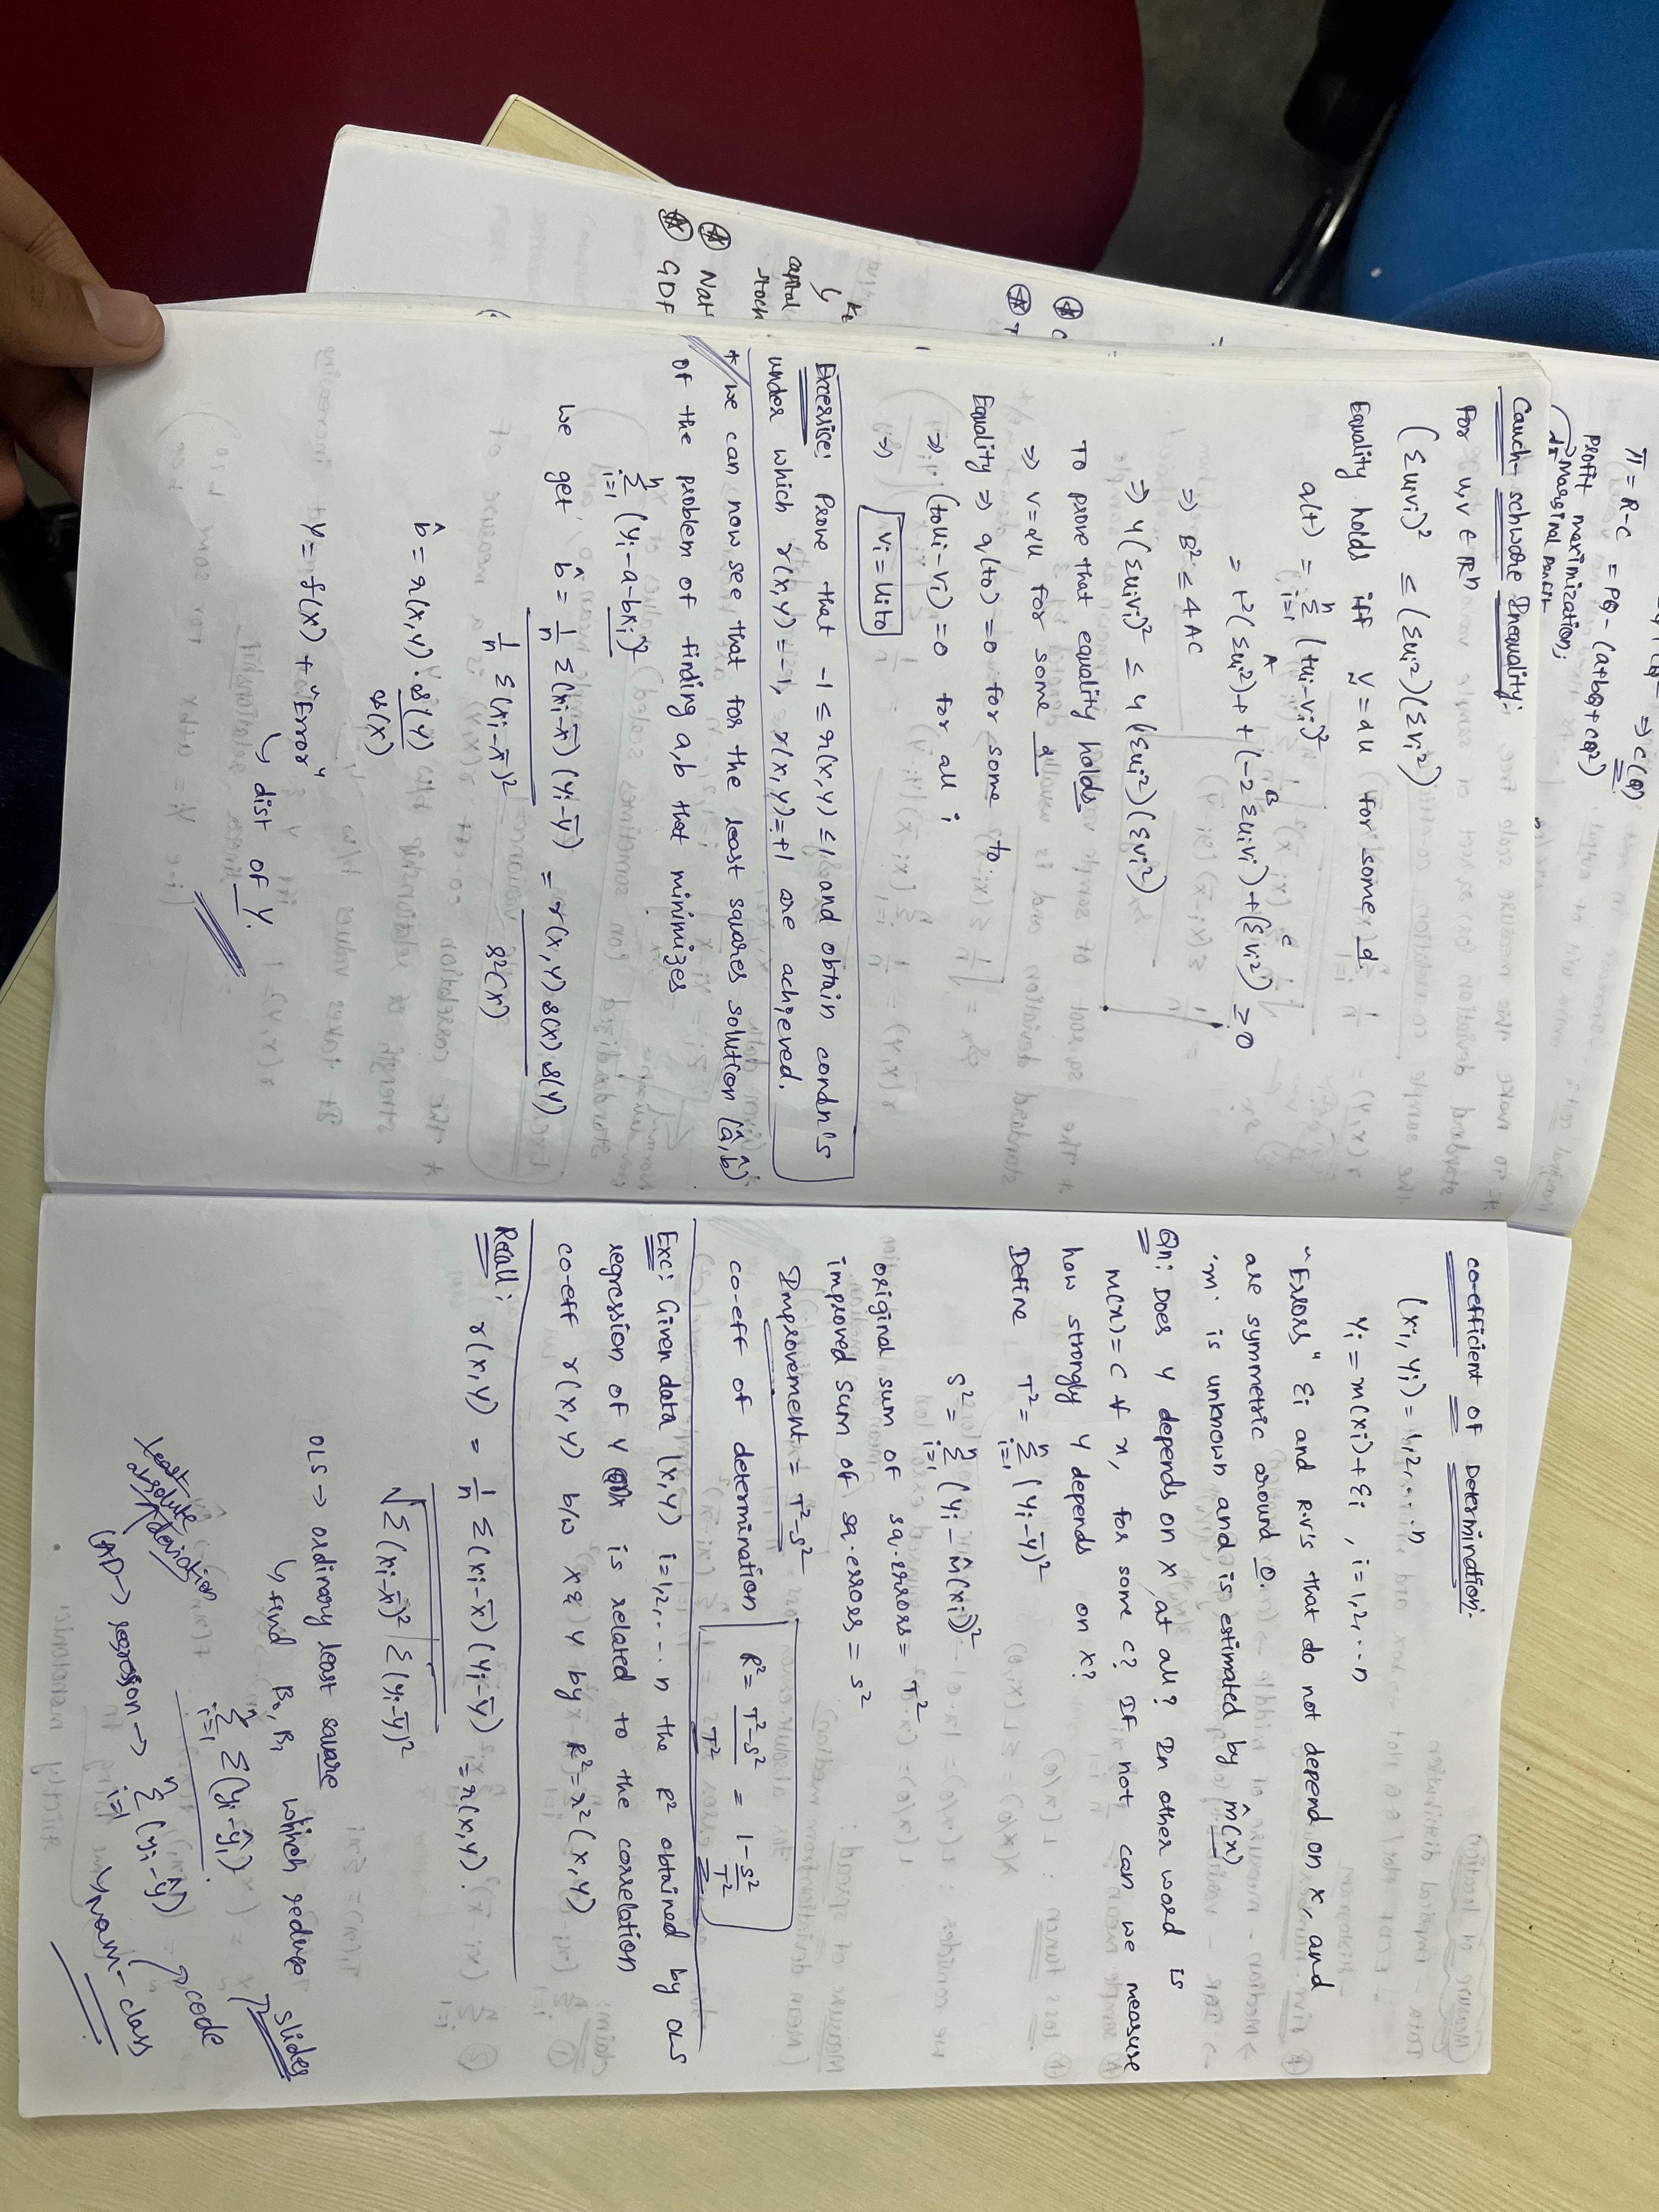 π = R-C = PQ - (a+bQ+cQ²)
profit maximization;
Marginal
⇒ C(Q)
Cauch-schwarz Inequality:
For u,v ∈ ℝⁿ
(Σuivi)² ≤ (Σui²)(Σvi²)
Equality holds iff v = αu for some α
q(t) = Σ(i=1 to n) (tui-vi)²
A B C
= t²(Σui²) + t(-2Σuivi) + (Σvi²) ≥ 0
⇒ B² ≤ 4AC
⇒ 4(Σuivi)² ≤ 4(Σui²)(Σvi²)
To prove that equality holds
⇒ v=αu for some α
Equality ⇒ q(to)=0 for some to
⇒ (toui-vi)=0 for all i
⇒ vi = uito
Excersice: Prove that -1 ≤ r(x,y) ≤ 1 and obtain condn's
under which r(x,y)=-1, r(x,y)=+1 are achieved.
* we can now see that for the least squares solution (â,b̂)
of the problem of finding a,b that minimizes
Σ(i=1 to n) (yi-a-bxi)²
we get b̂ = 1/n Σ(xi-x̄)(yi-ȳ) / 1/n Σ(xi-x̄)² = r(x,y)s(x)s(y) / s²(x)
b̂ = r(x,y).s(y) / s(x)
Y = f(x) + "Error"
↳ dist of Y.
co-efficient of Determination:
(xi, yi) = 1,2,...n
yi = m(xi)+εi , i=1,2,...n
"Errors" εi and R.V's that do not depend on x, and
are symmetric around 0.
'm' is unknown and is estimated by m̂(x)
Qn: Does y depends on x at all? In other word is
m(x)=c ∀ x, for some c? If not can we measure
how strongly y depends on x?
Define T² = Σ(i=1 to n) (yi-ȳ)²
S² = Σ(i=1 to n) (yi-m̂(xi))²
original sum of sq.errors = T²
improved sum of sq.errors = S²
Improvement = T²-S²
co-eff of determination R² = T²-S² / T² = 1-S²/T²
Exc: Given data (x,y) i=1,2,...n the R² obtained by OLS
regression of y is related to the correlation
co-eff r(x,y) b/w x & y by R²=r²(x,y)
Recall: r(x,y) = 1/n Σ(xi-x̄)(yi-ȳ) / √Σ(xi-x̄)² Σ(yi-ȳ)² = r(x,y).
OLS → ordinary least square
↳ find β0, β1 which reduce
Σ(i=1 to n) Σ(yi-ŷi)
slides
least absolute deviation
LAD → regression → Σ(i=1 to n) (yi-ŷ)
code
↳ class
capital
stock
Kt
Nat
GDP